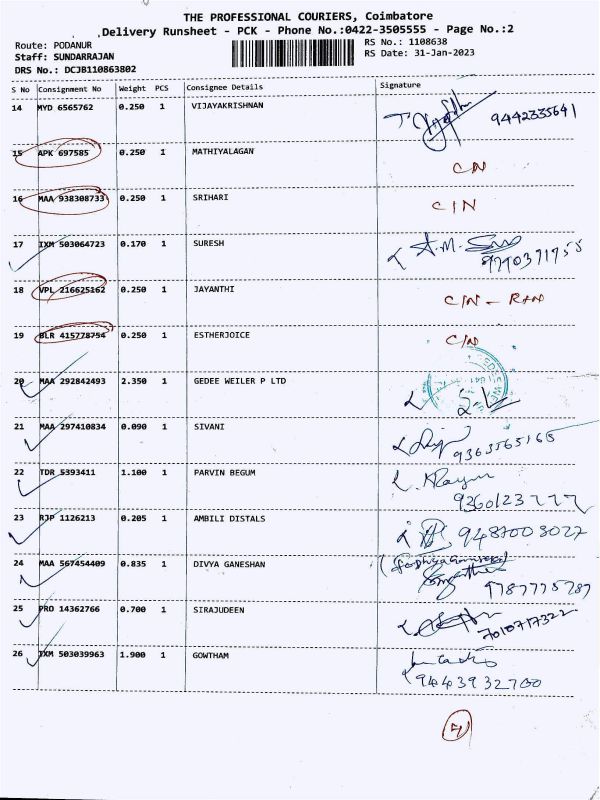 THE PROFESSIONAL COURIERS, Coimbatore
Delivery Runsheet - PCK - Phone No.:0422-3505555 - Page No.:2
Route: PODANUR
RS No.: 1108638
Staff: SUNDARRAJAN
RS Date: 31-Jan-2023
DRS No.: DCJB110863802
S No Consignment No Weight PCS Consignee Details Signature
14 MYD 6565762 0.250 1 VIJAYAKRISHNAN 9442335641
15 APK 697585 0.250 1 MATHIYALAGAN C/N
16 MAA 938308733 0.250 1 SRIHARI C/N
17 IXM 503064723 0.170 1 SURESH
9790371955
18 VPL 216625162 0.250 1 JAYANTHI C/N -
19 BLR 415778754 0.250 1 ESTHERJOICE C/N
20 MAA 292842493 2.350 1 GEDEE WEILER P LTD
21 MAA 297410834 0.090 1 SIVANI
9363565165
22 TDR 5393411 1.100 1 PARVIN BEGUM
9360123777
23 RJP 1126213 0.205 1 AMBILI DISTALS 9487003027
24 MAA 567454409 0.835 1 DIVYA GANESHAN
9787775787
25 PRO 14362766 0.700 1 SIRAJUDEEN
7010717322
26 IXM 503039963 1.900 1 GOWTHAM
9443932700